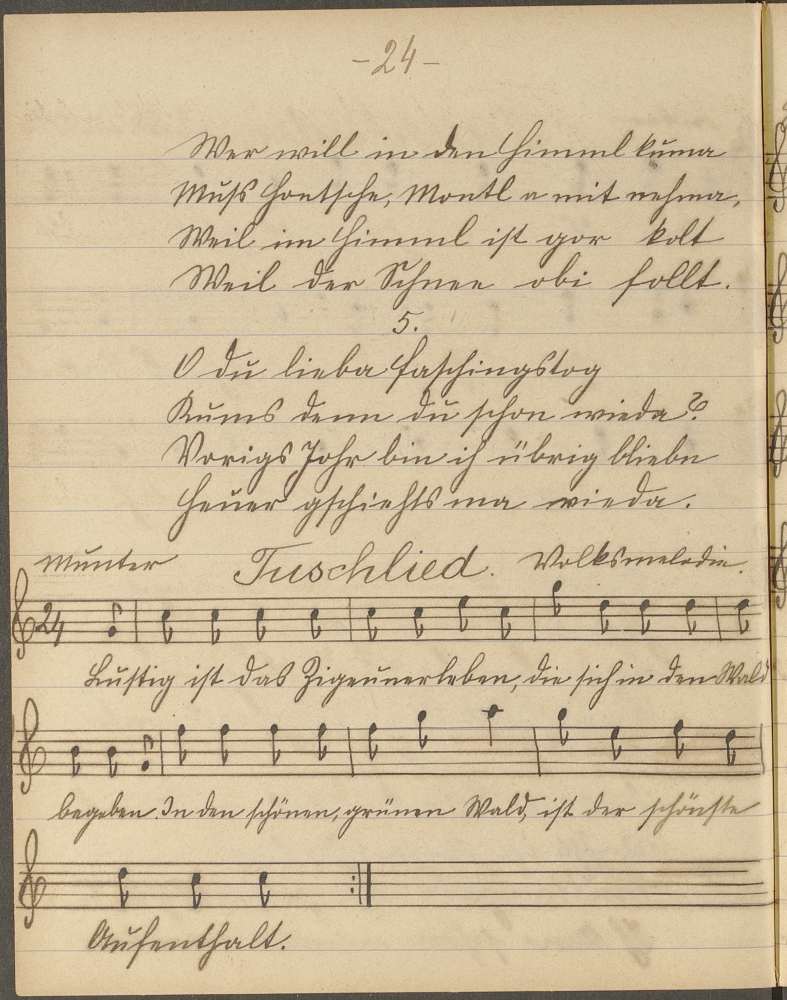 -24-
Wer will in den Himml kuma
Muss Hontsche, Montl a mit nehma,
Weil im Himml ist gor kolt
Weil der Schnee obi follt.
5.
O du lieba Faschingstog
Kums denn du schon wieda?
Vorigs Johr bin ich übrig bliebn
Heuer gschiehts ma wieda.
Munter Tuschlied. Volksmelodie.
24
Lustig ist das Zigeunerleben, die sich in den Wald
begeben. In den schönen, grünen Wald, ist der schönste
Aufenthalt.